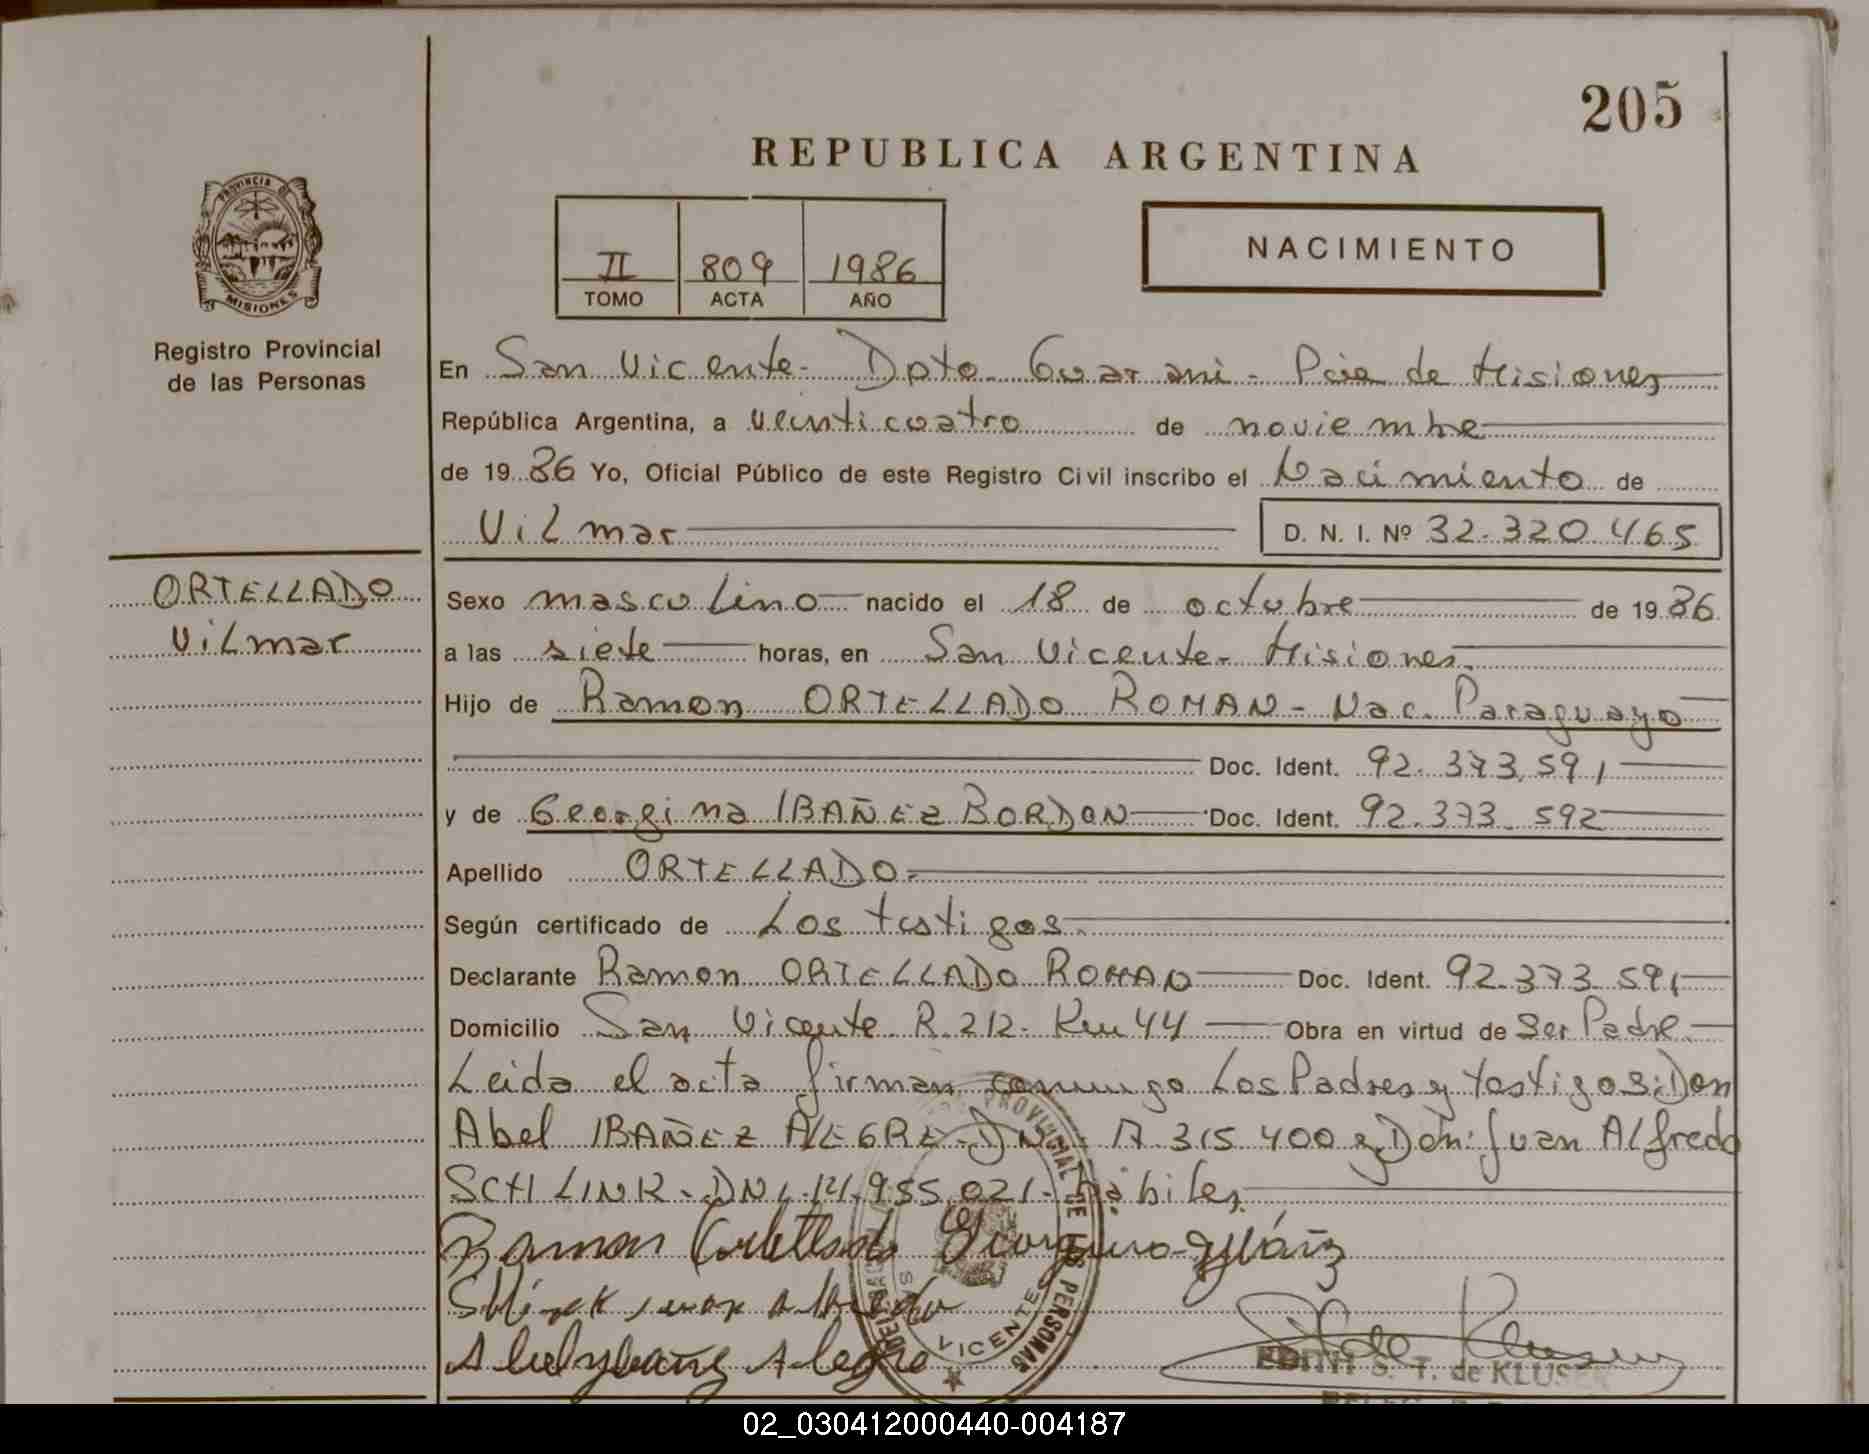 205
REPUBLICA ARGENTINA
PROVINCIA DE
MISIONES
Registro Provincial
de las Personas
II 809 1986
TOMO ACTA AÑO
NACIMIENTO
En San Vicente - Dpto - Guarani - Pcia de Misiones
República Argentina, a veinticuatro de noviembre
de 19 86 Yo, Oficial Público de este Registro Civil inscribo el Nacimiento de
Vilmar D. N. I. Nº 32.320.465
ORTELLADO
Vilmar
Sexo masculino nacido el 18 de octubre de 19 86
a las siete horas, en San Vicente - Misiones.
Hijo de Ramon ORTELLADO ROMAN - Nac. Paraguayo
Doc. Ident. 92.373.591
y de Georgina IBAÑEZ BORDON Doc. Ident. 92.373.592
Apellido ORTELLADO.
Según certificado de Los testigos.
Declarante Ramon ORTELLADO ROMAN Doc. Ident. 92.373.591
Domicilio San Vicente R.212. Km 44 Obra en virtud de Ser Padre.
Leida el acta firman conmigo Los Padres y testigos: Don
Abel IBAÑEZ ALEGRE - DNI 17.315.400 y Don: Juan Alfredo
SCHLINK - DNI. 14.955.021 - hábiles.
Ramon Ortellado Georgina Ibáñz
PROVINCIAL DE LAS PERSONAS
VICENTE
EDITH S. T. de KLUSER
02_030412000440-004187